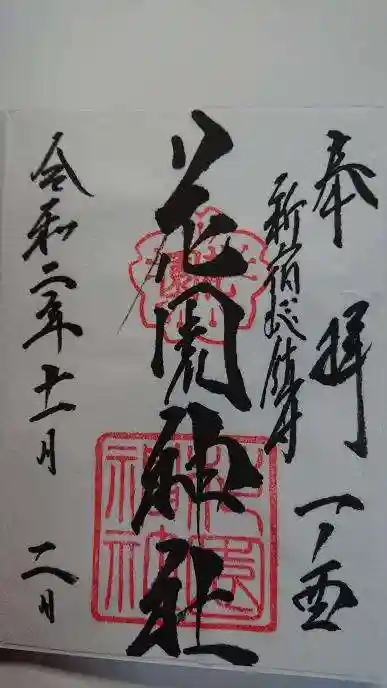 奉拝 一ノ酉
新宿総鎮守
花園神社
令和二年十一月二日
花園神社